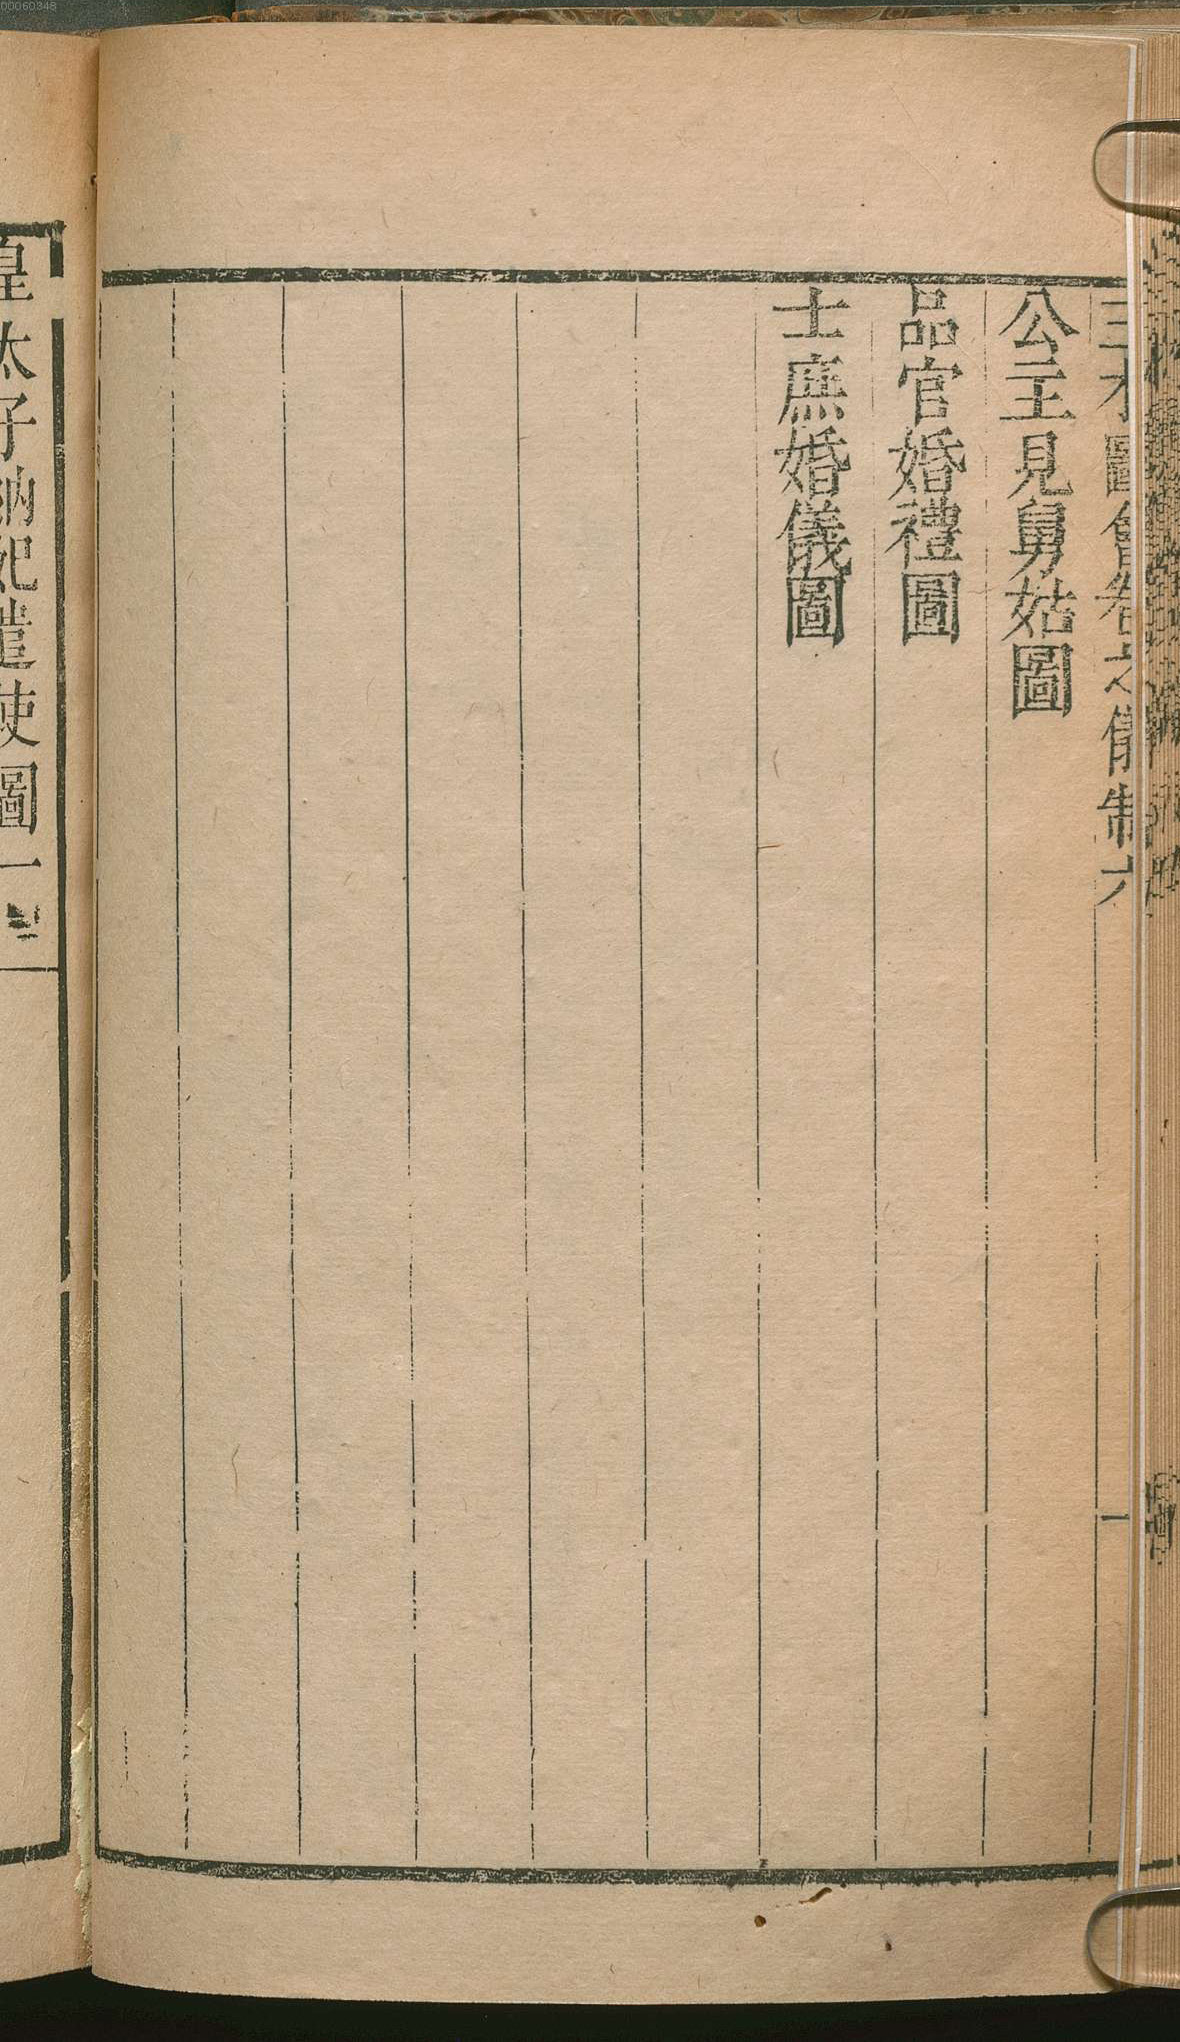 三才圖會卷之儀制六
一
公主見舅姑圖
品官婚禮圖
士庶婚儀圖
皇太子納妃遣使圖一
00060348